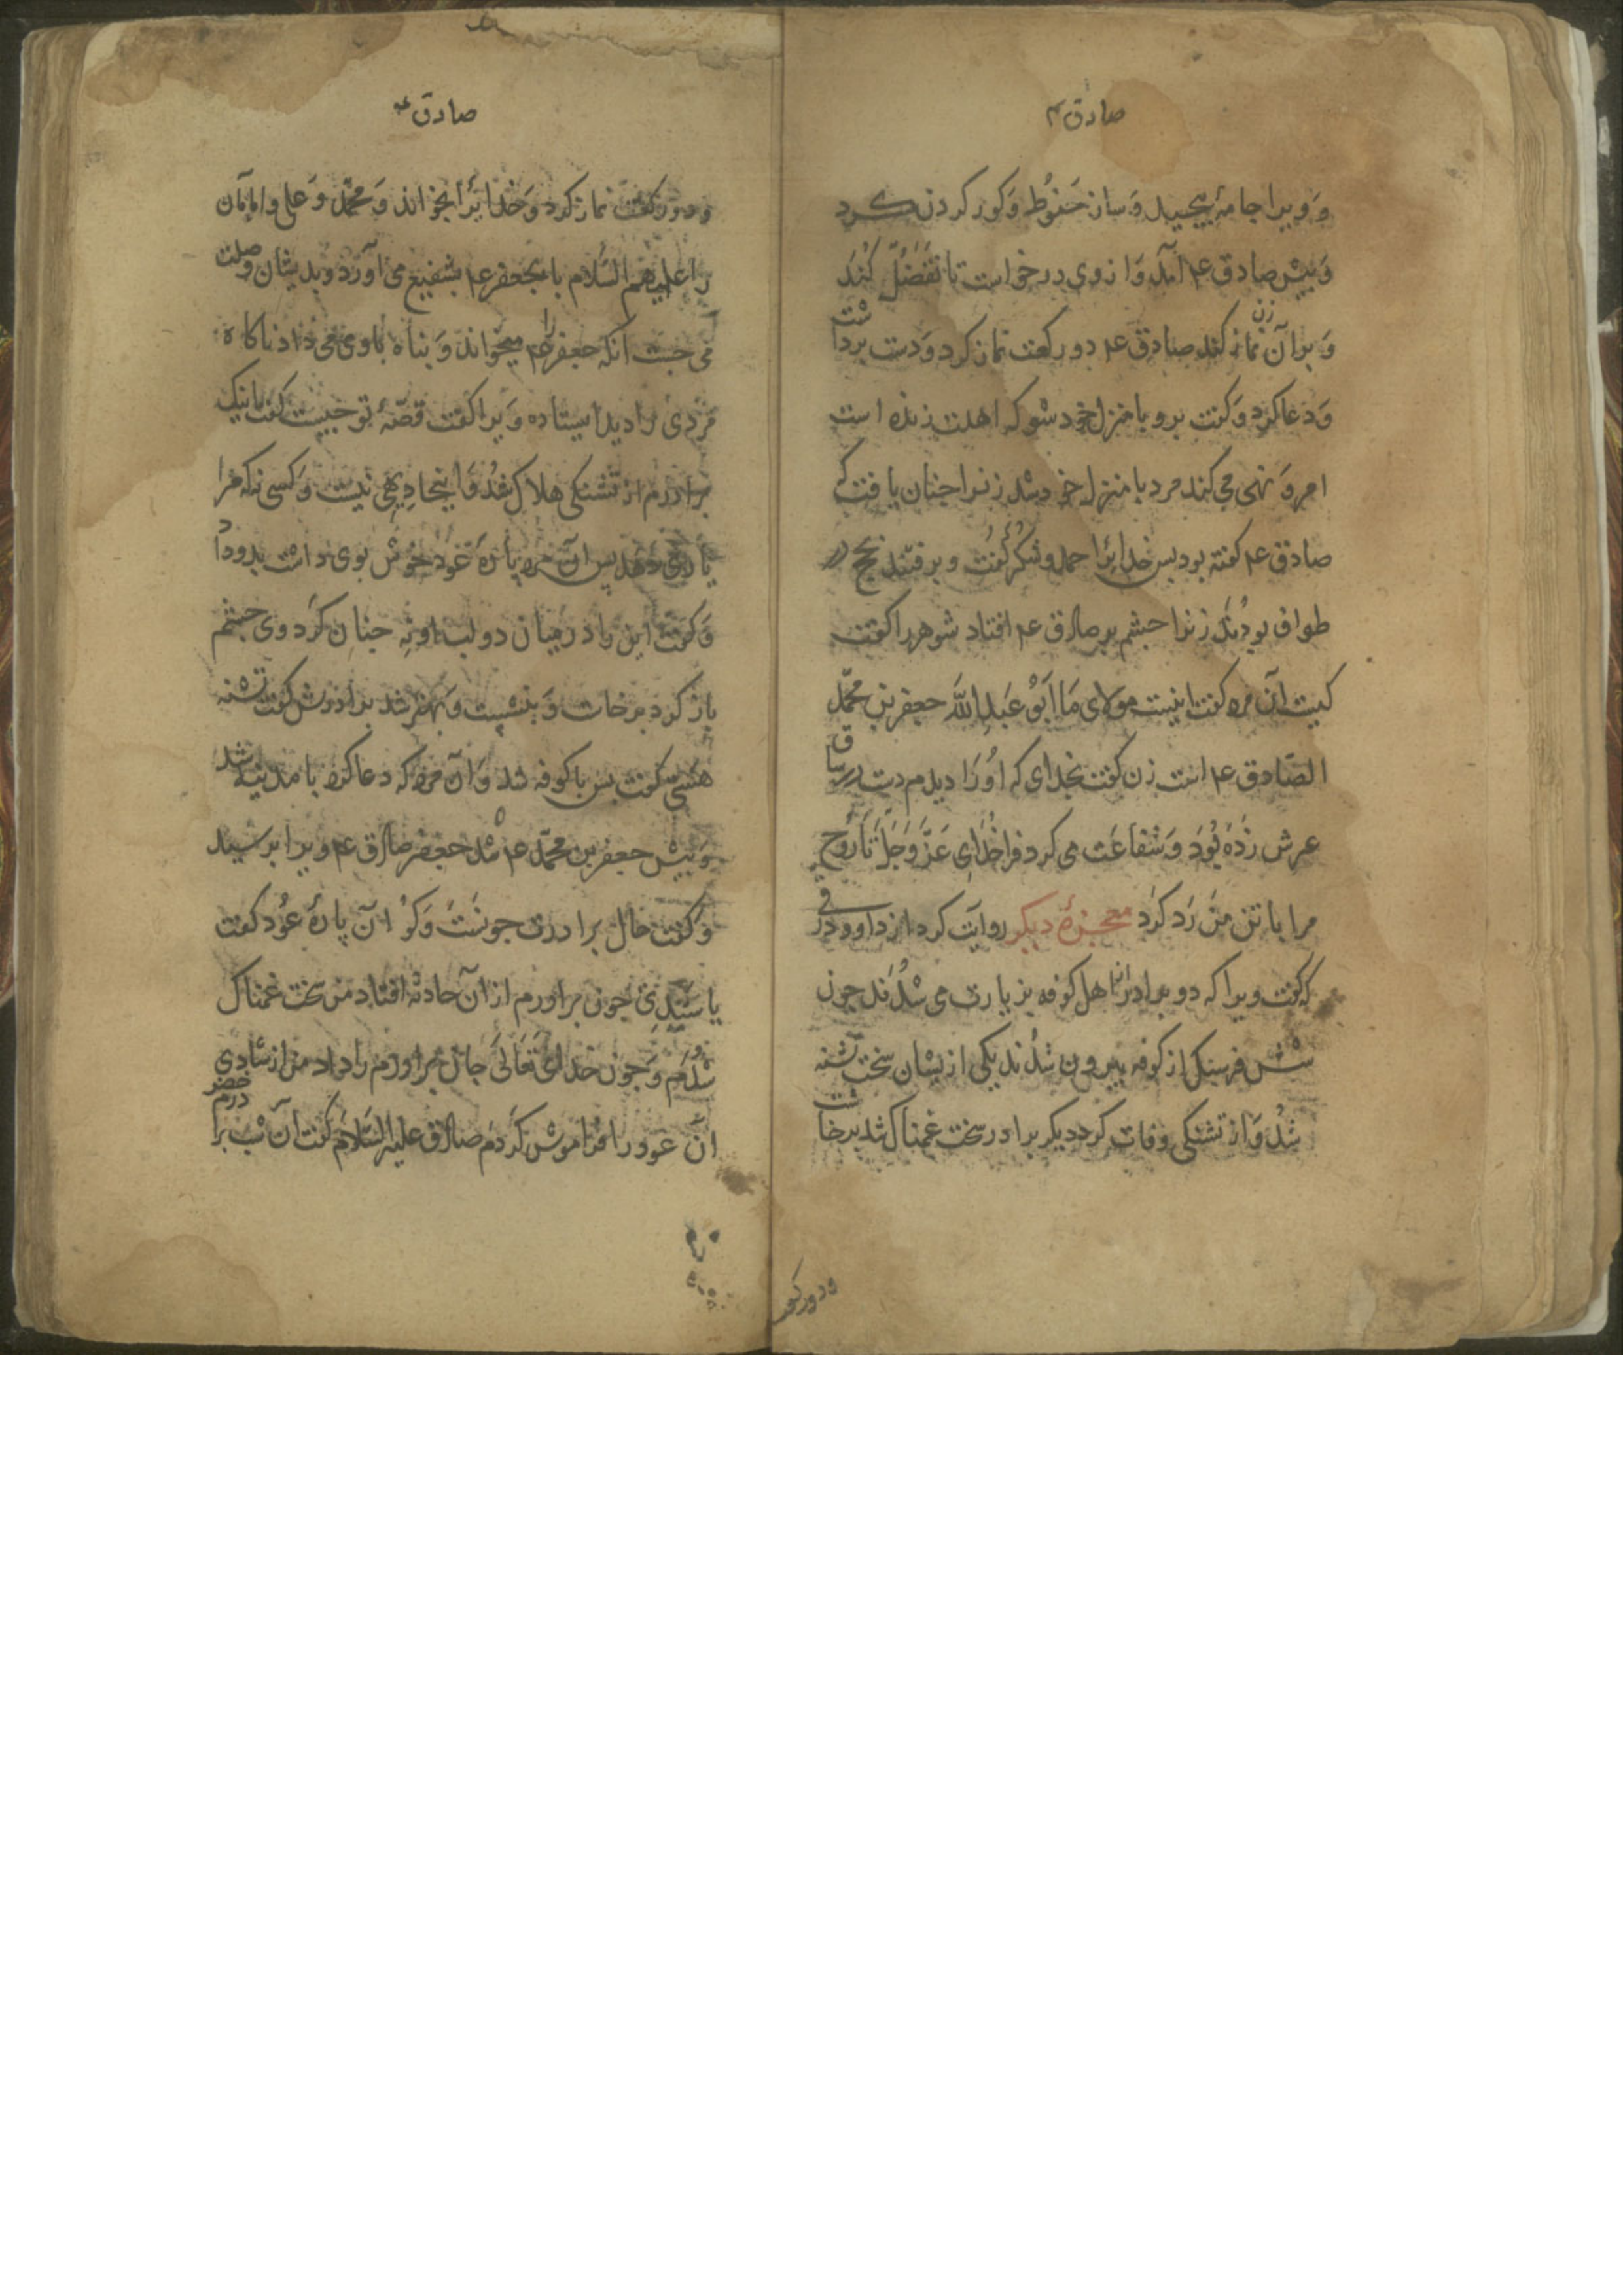 صادق ۴
و ویرا جامه بپیچید و ساز حَنوُط و کور کردن کرد
وَ پیش صادق ع۴ آمد وَ از وی درخواست تا تَفَضُّل کُند
وَ بر آن زن نماز کند صادق ع۴ دو رکعت نماز کرد وَ دست برداشت
وَ دعا کرد وَ کفت برو با منزل خود شو که اهلت زنده است
امر وَ نهی می کند مرد با منزل خود شد زنرا چنان یافت که
صادق ع۴ کفته بود بس خدایرا حمد و شکر کفت و برفتند بحج در
طواف بودند زنرا چشم بر صادق ع۴ افتاد شوهر را کفت
کیست آن مرد کفت اینست مولای مَا اَبُو عَبدِ اللَّه جعفر بن محمّد
الصّادق ع۴ است زن کفت بخدای که اُو را دیدم دست در ساق
عرش زَده بُوَد وَ شفاعَت می کرد فرا خُدای عَزَّ وَ جَلَّ تَا رُوح
مرا با تن مَن رَد کرد معجزهٔ دیکر روایَت کرد از داوود رقی
که کفت ویرا که دو برادر از اهل کوفه بزیارت می شدُند چون
شش فرسنک از کوفه بیرون شُدند یکی ازیشان سخت تشنه
شُد وَ از تشنکی وفات کرد دیکر برادر سخت غمناک شد برخاست
و دو رکعت
صادق ع
و دو رکعت نماز کرد وَ خدایرا بخواند وَ محمّد وَ علی و امامان
را علیهم السّلام تا بجعفر ع۴ بشفیع می آورد و بدیشان وصلت
می جست آنکه جعفر را ع۴ میخواند وَ پناه باوی می داد ناکاه
مَردی را دید ایستاده وَیرا کفت قصّهٔ تو چیست کفت اینک
برادرم از تشنکی هلاک شُد وَ اینجا دِیهی نیست وَ کسی نه که مرا
یاری دهد بس آن مرد پارهٔ عود خوش بوی داشت بدو داد
وَ کفت این را در میان دو لب او نِه چنان کرد وی چشم
باز کرد برخاست وَ بنشست وَ بهتر شد برادرش کفت تشنه
هستی کفت بس با کوفه شد وَ آن مرد که دعا کرد با مدینه شد
وَ پیش جعفر بن محمّد ع۴ شد جعفر صادق ع۴ ویرا بر سید
وَ کفت حال برادرت چونست وَ کو آن پارهٔ عوُد کفت
یا سَیِّدِی چون برادرم از آن حادثه افتاد من سخت غمناک
شُدم وَ چون خدای تَعَالَی جان برادرم را داد من از شادی
آن عود را فراموش کردم صادق علیه السّلام کفت آن شب برادرم خضر